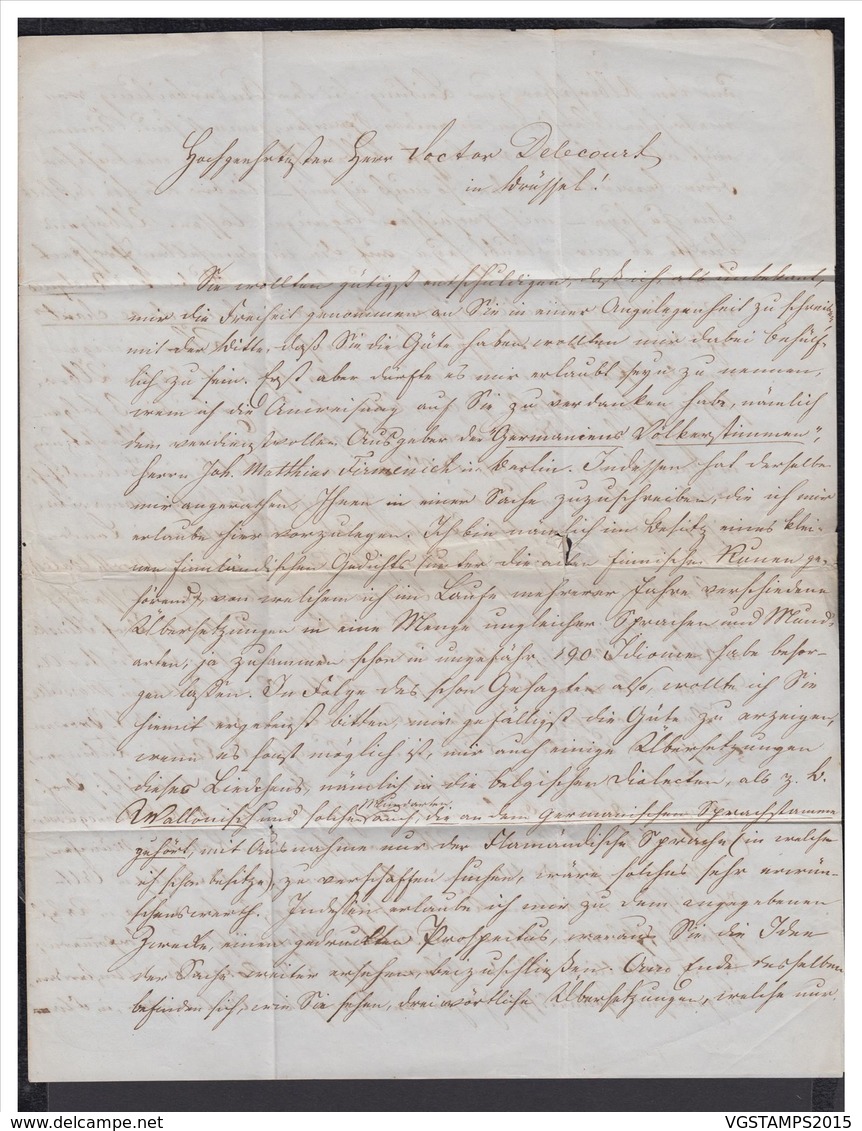 Hochgeehrtester Herr Doctor Delecourt
in Brüssel!
Sie wollten gütigst entschuldigen, daß ich, als unbekannt,
mir die Freiheit genommen an Sie in einer Angelegenheit zu schreiben,
mit der Bitte, daß Sie die Güte haben wollten mir dabei behülf-
lich zu sein. Erst aber dürfte es mir erlaubt seyn zu nennen,
wem ich die Anweisung auf Sie zu verdanken habe, nämlich
dem verdienstvollen Ausgeber der "Germaniens Völkerstimmen",
Herrn Joh. Matthias Firmenich in Berlin. Indessen hat derselbe
mir angerathen, Ihnen in einer Sache zuzuschreiben, die ich mir
erlaube hier vorzulegen. Ich bin nämlich im Besitz eines klei-
nen finnländischen Gedichts hunter die alten finnischen Runen ge-
hörend, von welchem ich im Laufe mehrerer Jahre verschiedene
Übersetzungen in eine Menge ungleicher Sprachen und Mund-
arten, ja zusammen schon in ungefähr 190 Idiome habe besor-
gen lassen. In Folge des schon Gesagten also, wollte ich Sie
hiemit ergebenst bitten, mir gefälligst die Güte zu erzeigen,
wenn es sonst möglich ist, mir auch einige Übersetzungen
dieses Liedchens, nämlich in die belgischen Dialecten, als z. B.
Wallonisch und solche Mundarten auch, die an dem germanischen Sprachstamm
gehört, mit Ausnahme nur der Flamändische Sprache (in welche
ich schon besitze), zu verschaffen suchen, wäre solches sehr erwün-
schenswerth. Indessen erlaube ich mir zu dem angegebenen
Zwecke, einen gedruckten Prospectus, woraus Sie die Idee
der Sache weiter ersehen, beizuschließen. Am Ende desselben
befinden sich, wie Sie sehen, drei wörtliche Übersetzungen, welche nur
VGSTAMPS2015